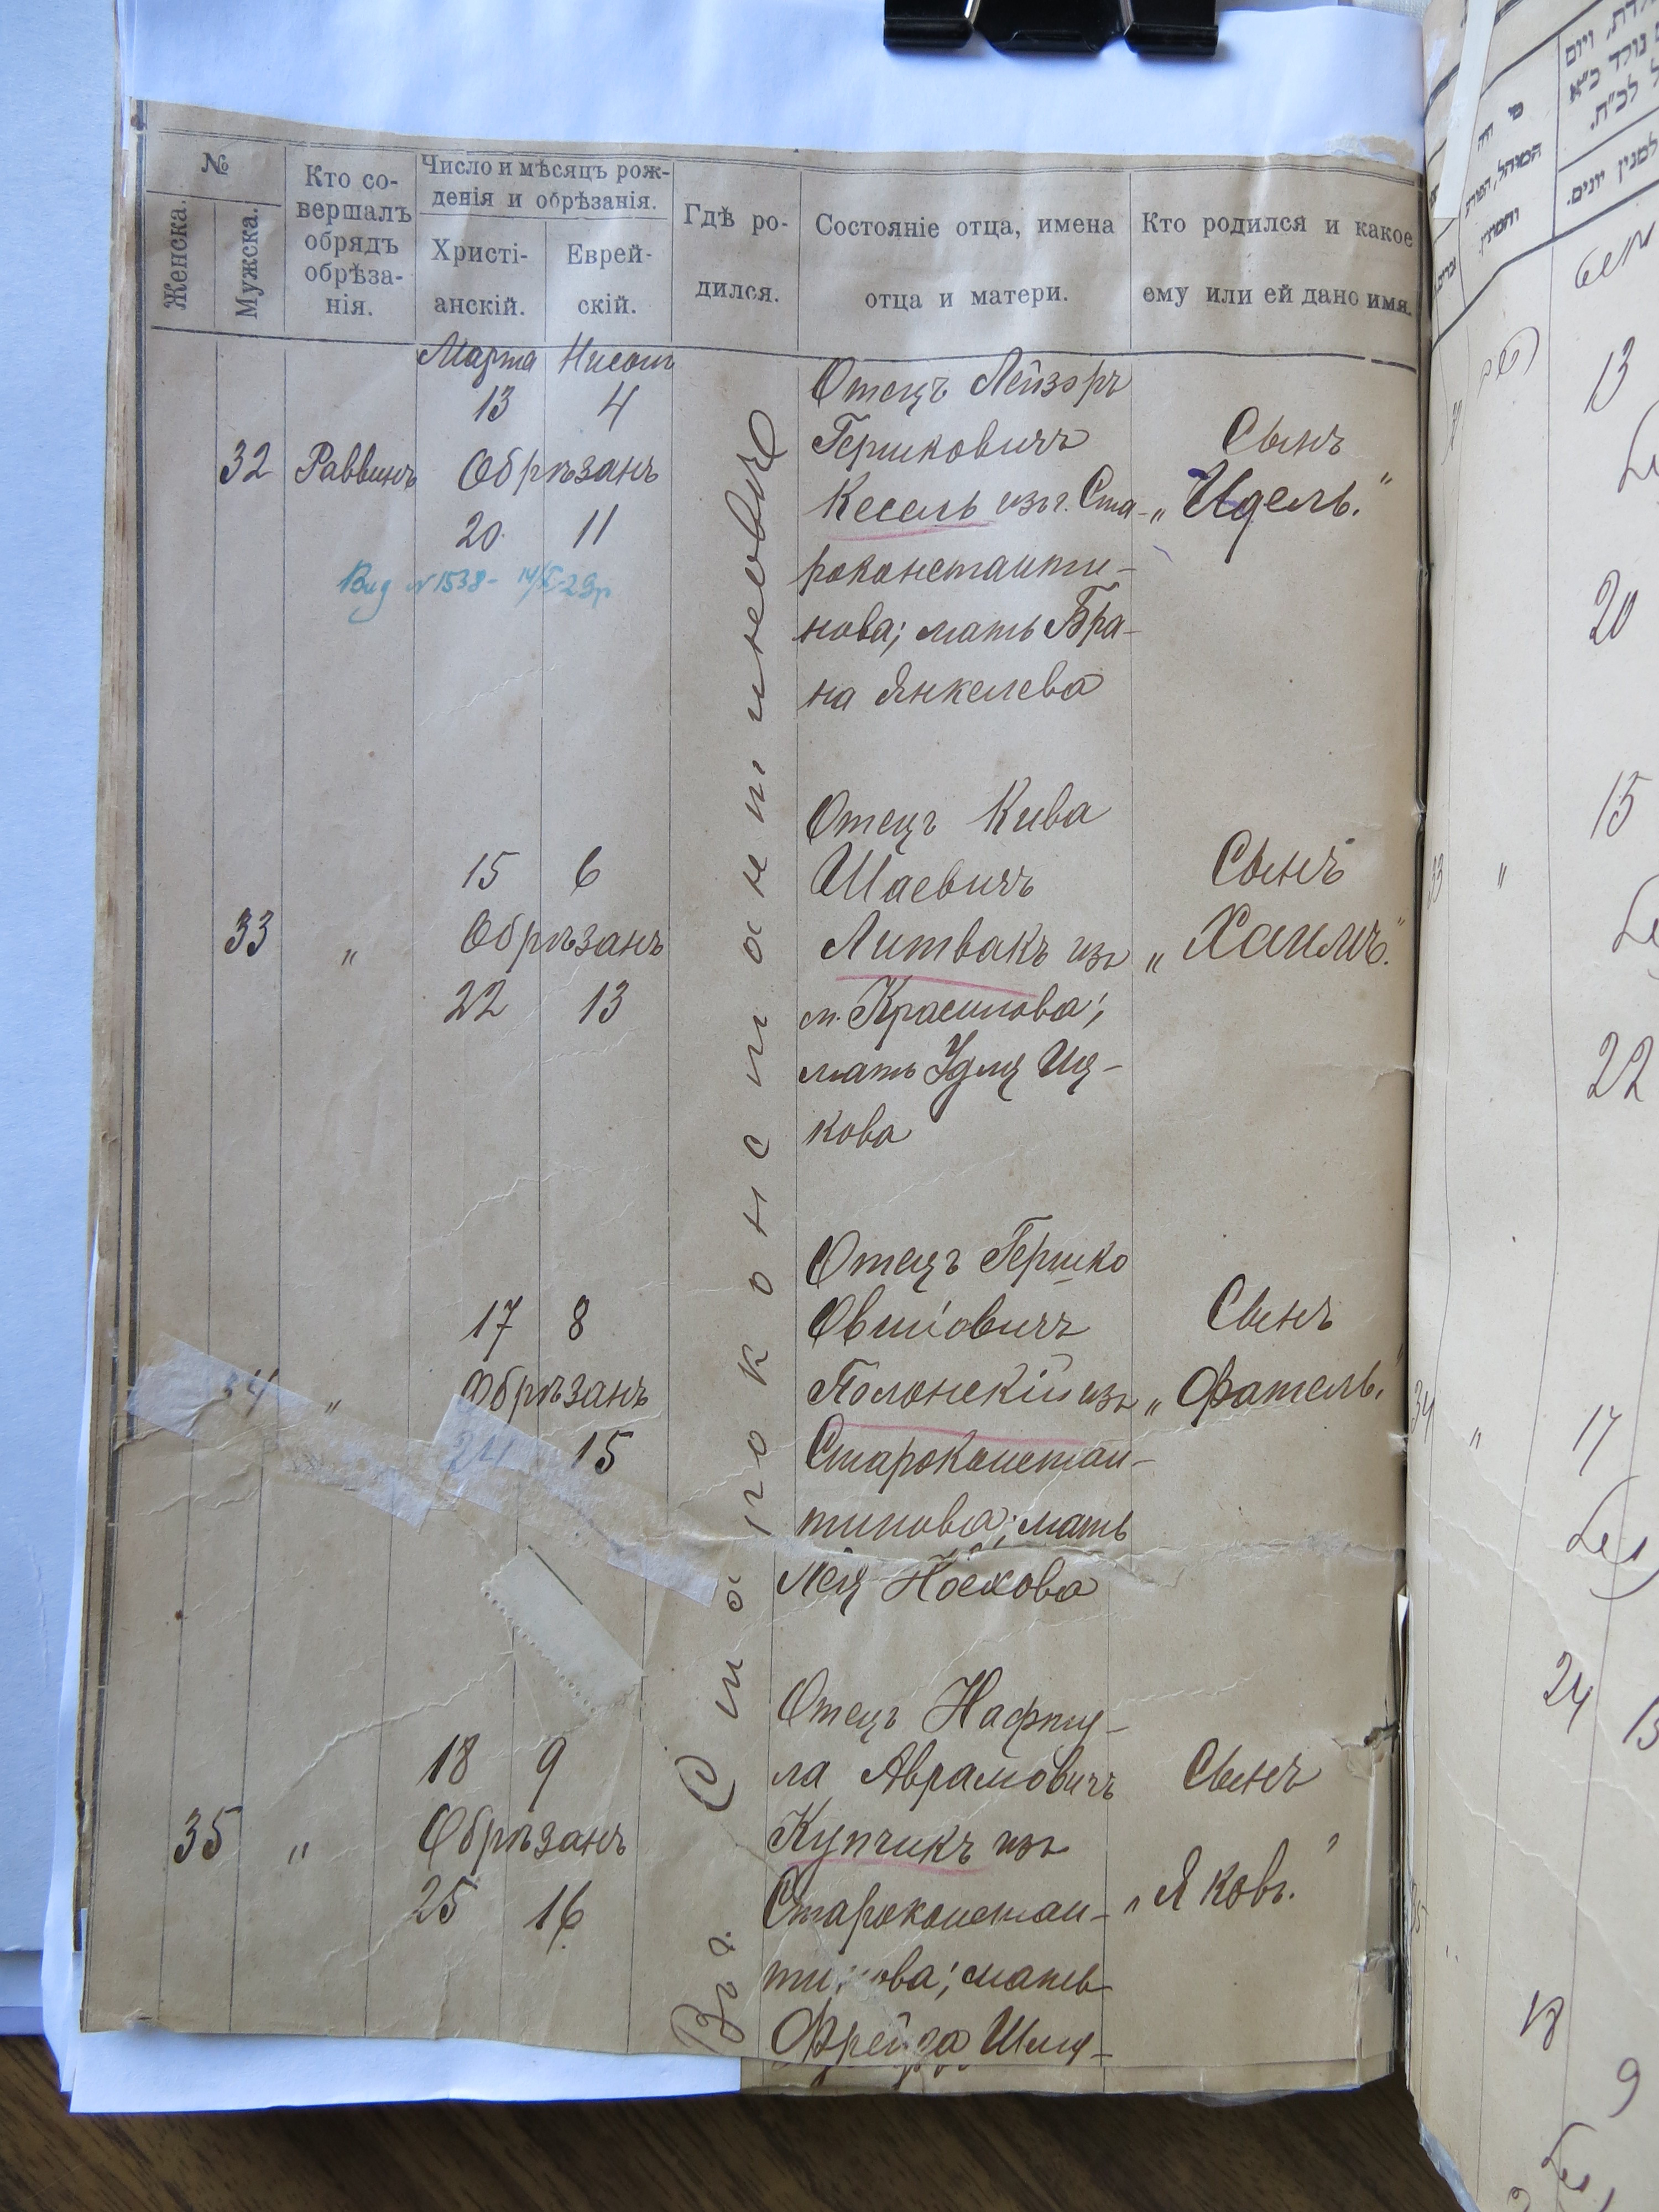 №
Женска.
Мужска.
Кто со-
вершалъ
обрядъ
обрѣза-
нія.
Число и мѣсяцъ рож-
денія и обрѣзанія.
Христі-
анскій.
Еврей-
скій.
Гдѣ ро-
дился.
Состояніе отца, имена
отца и матери.
Кто родился и какое
ему или ей дано имя.
Марта Нисонъ
13 4
32 Раввинъ Обрѣзанъ
20 11
Вид №1538-
Отецъ Лейзоръ
Гершковичъ
Кесель изъ г. Ста-
роконстанти-
нова; мать Бра-
на Янкелева
Сынъ
„Идель."
Въ г. Староконстантиновѣ
15 6
33 „ Обрѣзанъ
22 13
Отецъ Кива
Шаевичъ
Литвакъ изъ
м. Красилова;
мать Удля Иц-
кова
Сынъ
„Хаимъ."
17 8
34 „ Обрѣзанъ
24 15
Отецъ Гершко
Овшіовичъ
Полонскій изъ
Староконстан-
тинова; мать
Лея Ноехова
Сынъ
„Фатель."
18 9
35 „ Обрѣзанъ
25 16
Отецъ Нафту-
ла Аврамовичъ
Купчикъ изъ
Староконстан-
тинова; мать
Фрейда Шлі-
Сынъ
„Яковъ."
13
20
15
22
17
24 15
18
9